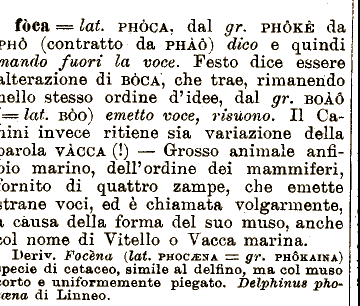 fòca = lat. PHÒCA, dal gr. PHÔKÊ da
PHÔ (contratto da PHÀÔ) dico e quindi
mando fuori la voce. Festo dice essere
alterazione di BÒCA, che trae, rimanendo
nello stesso ordine d'idee, dal gr. BOÀÔ
(= lat. BÒO) emetto voce, risuono. Il Ca-
nini invece ritiene sia variazione della
parola VÀCCA (!) — Grosso animale anfi-
bio marino, dell'ordine dei mammiferi,
fornito di quattro zampe, che emette
strane voci, ed è chiamata volgarmente,
a causa della forma del suo muso, anche
col nome di Vitello o Vacca marina.
Deriv. Focèna (lat. PHOCÆNA = gr. PHÔKAINA)
specie di cetaceo, simile al delfino, ma col muso
corto e uniformemente piegato. Delphinus pho-
cæna di Linneo.